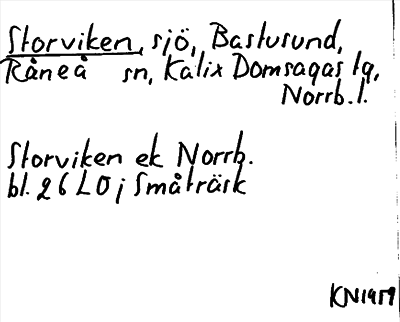 Storviken, sjö, Bastusund,
Råneå sn, Kalix Domsagas tg,
Norrb. l.
Storviken ek Norrb.
bl. 26 L 0 j Småträsk